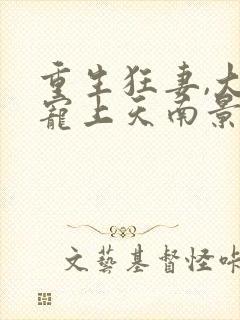 重生狂妻,大
宠上天南景
文艺基督怪咔